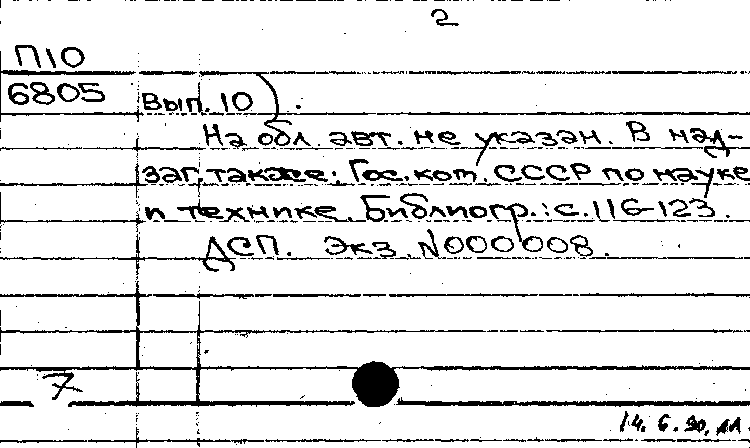 2
П10
6805 Вып. 10).
На обл. авт. не указан. В над-
заг. также: Гос. ком. СССР по науке
и технике. Библиогр.: с. 116-123.
ДСП. Экз. N000008.
7
14. 6. 90.